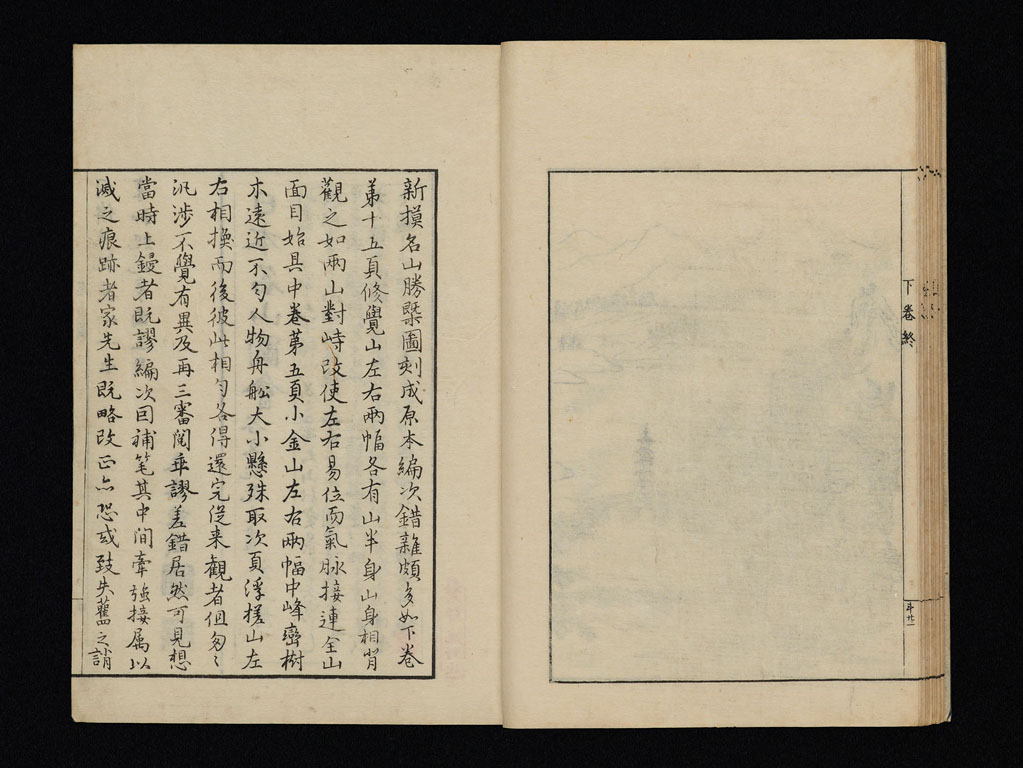 下卷終
新摸名山勝槩圖刻成原本編次錯雜頗多如下卷
第十五頁修覺山左右兩幅各有山半身山身相背
觀之如兩山對峙改使左右易位而氣脉接連全山
面目始具中卷第五頁小金山左右兩幅中峰巒樹
木遠近不勻人物舟舩大小懸殊取次頁浮槎山左
右相換而後彼此相勻各得還完從来觀者但匆〻
汎涉不覺有異及再三審閱乖謬差錯居然可見想
當時上鏝者既謬編次因補笔其中间牽強接属以
滅之痕跡者家先生既略改正亦恐或致失舊之誚